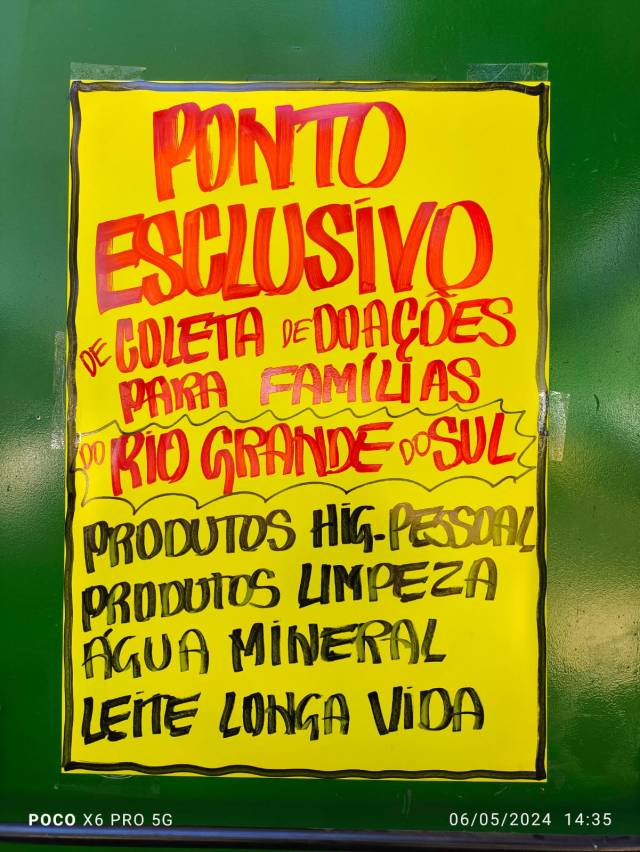 PONTO
ESCLUSÍVO
DE COLETA DE DOAÇÕES
PARA FAMÍLIAS
DO RIO GRANDE DO SUL
PRODUTOS HIG-PESSOAL
PRODUTOS LIMPEZA
ÁGUA MINERAL
LEITE LONGA VIDA
POCO X6 PRO 5G
06/05/2024 14:35